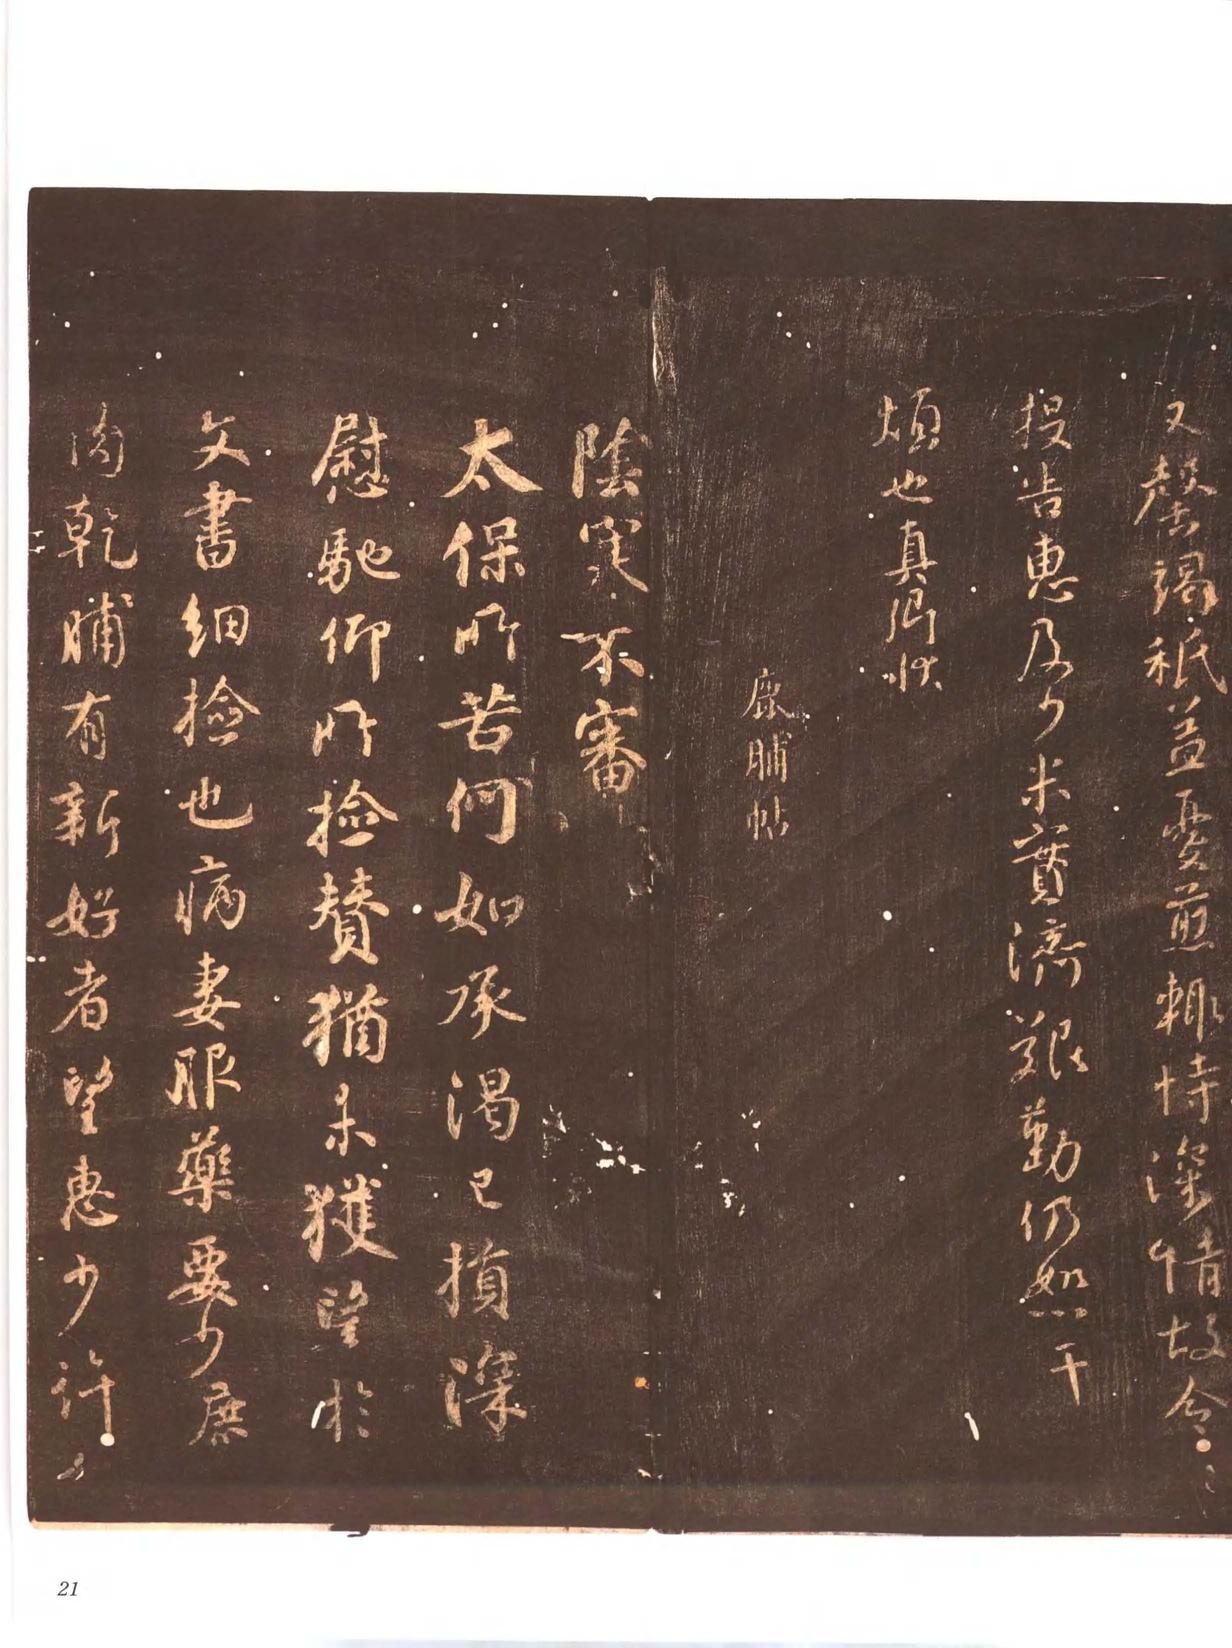 又罄竭秖益憂煎輒恃深情故令
投告惠及少米實濟艱勤仍恕干
煩也真卿狀
鹿脯帖
陰寒不審
太保所苦何如承渴已損深
慰馳仰所撿贊猶未獲望於
文書細撿也病妻服藥要少鹿
肉乾脯有新好者望惠少許
21